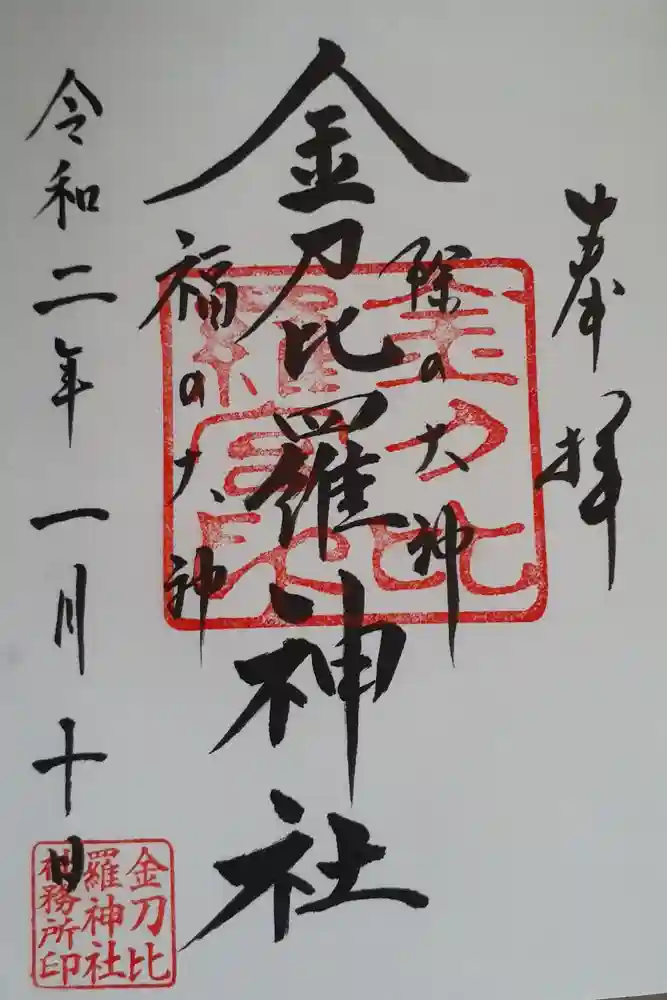 奉拝
除の大神
金刀比羅神社
福の大神
令和二年一月十日
金刀比
羅宮印
金刀比
羅神社
社務所印